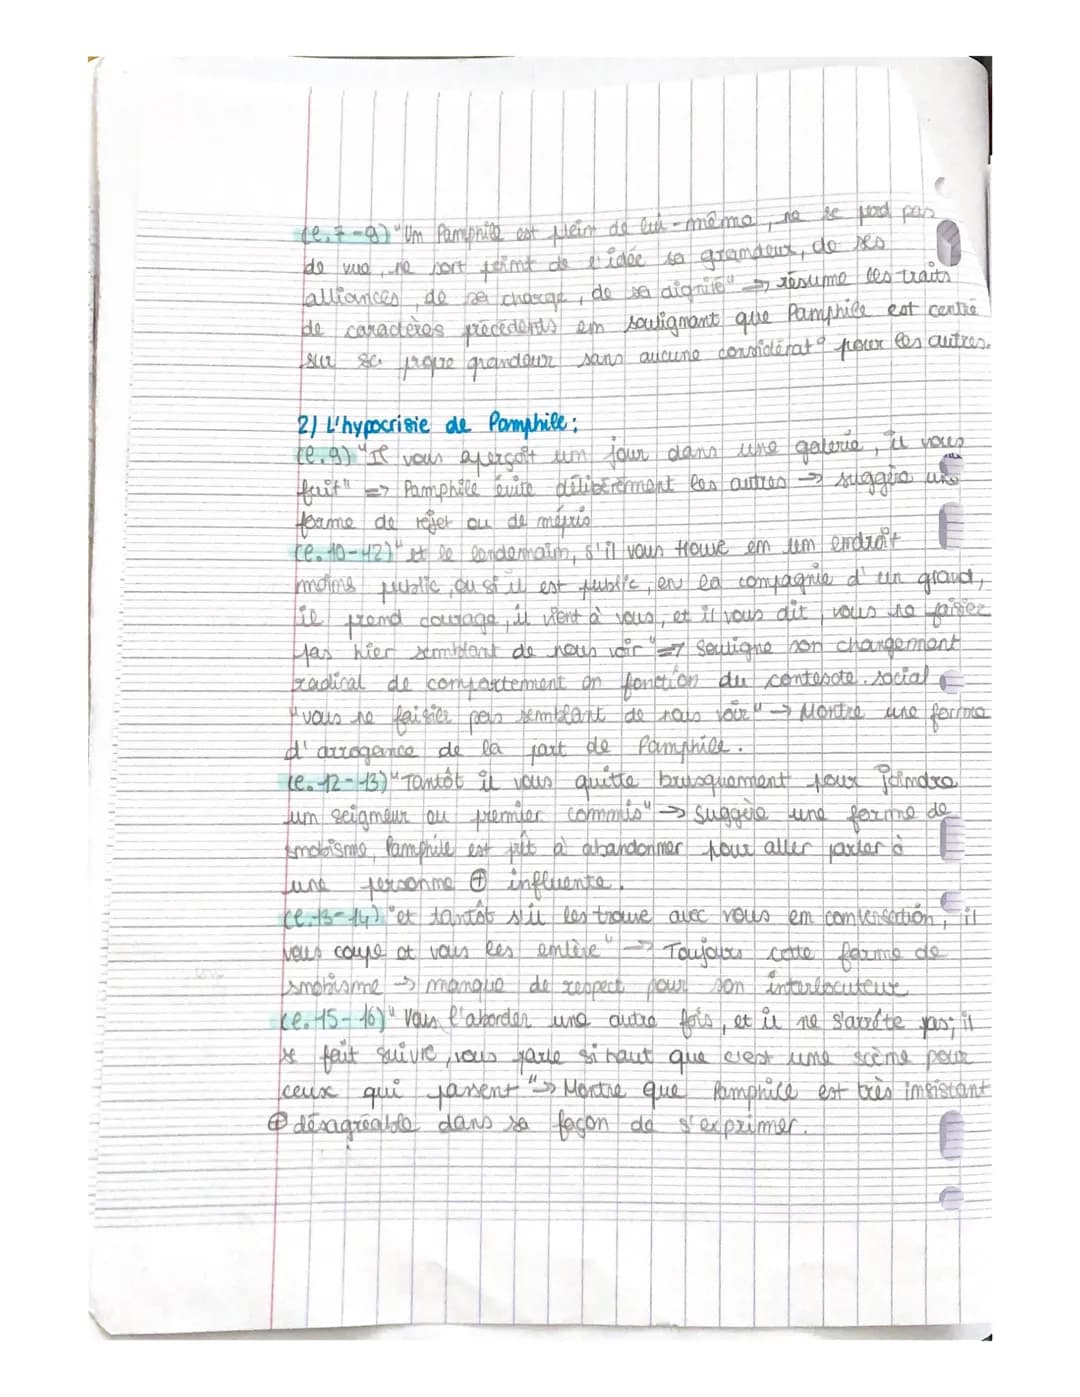 (l.7-9) "Um Pamphile est plein de lui-même, ne se perd pas
de vue, ne sort point de l'idée sa grandeur, de ses
alliances, de sa charge, de sa dignité" → résume les traits
de caractères précédents en soulignant que Pamphile est centré
sur sa propre grandeur sans aucune considérat° pour les autres.
2) L'hypocrisie de Pamphile :
(l.9) "Il vous aperçoit un jour dans une galerie, il vous
fuit" => Pamphile évite délibérément les autres → suggère une
forme de rejet ou de mépris
(l.10-12)" et le lendemain, s'il vous trouve en un endroit
moins public, ou si il est public, en la compagnie d'un grand,
il prend courage, il vient à vous, et il vous dit, vous ne faisiez
pas hier semblant de nous voir" => Souligne son changement
radical de comportement en fonction du contexte social
"vous ne faisiez pas semblant de nous voir" → Montre une forme
d'arrogance de la part de Pamphile.
(l.12-13) "Tantôt il vous quitte brusquement pour joindre
um seigneur ou premier commis" → suggère une forme de
snobisme, Pamphile est prêt à abandonner pour aller parler à
une personne ⊕ influente.
(l.13-14) "et tantôt s'il les trouve avec vous en conversation, il
vous coupe et vous les enlève" → Toujours cette forme de
snobisme → manque de respect pour son interlocuteur
(l.15-16)" Vous l'aborder une autre fois, et il ne s'arrête pas; il
se fait suivre, vous parle si haut que c'est une scène pour
ceux qui passent" → Montre que Pamphile est très insistant
⊕ désagréable dans sa façon de s'exprimer.